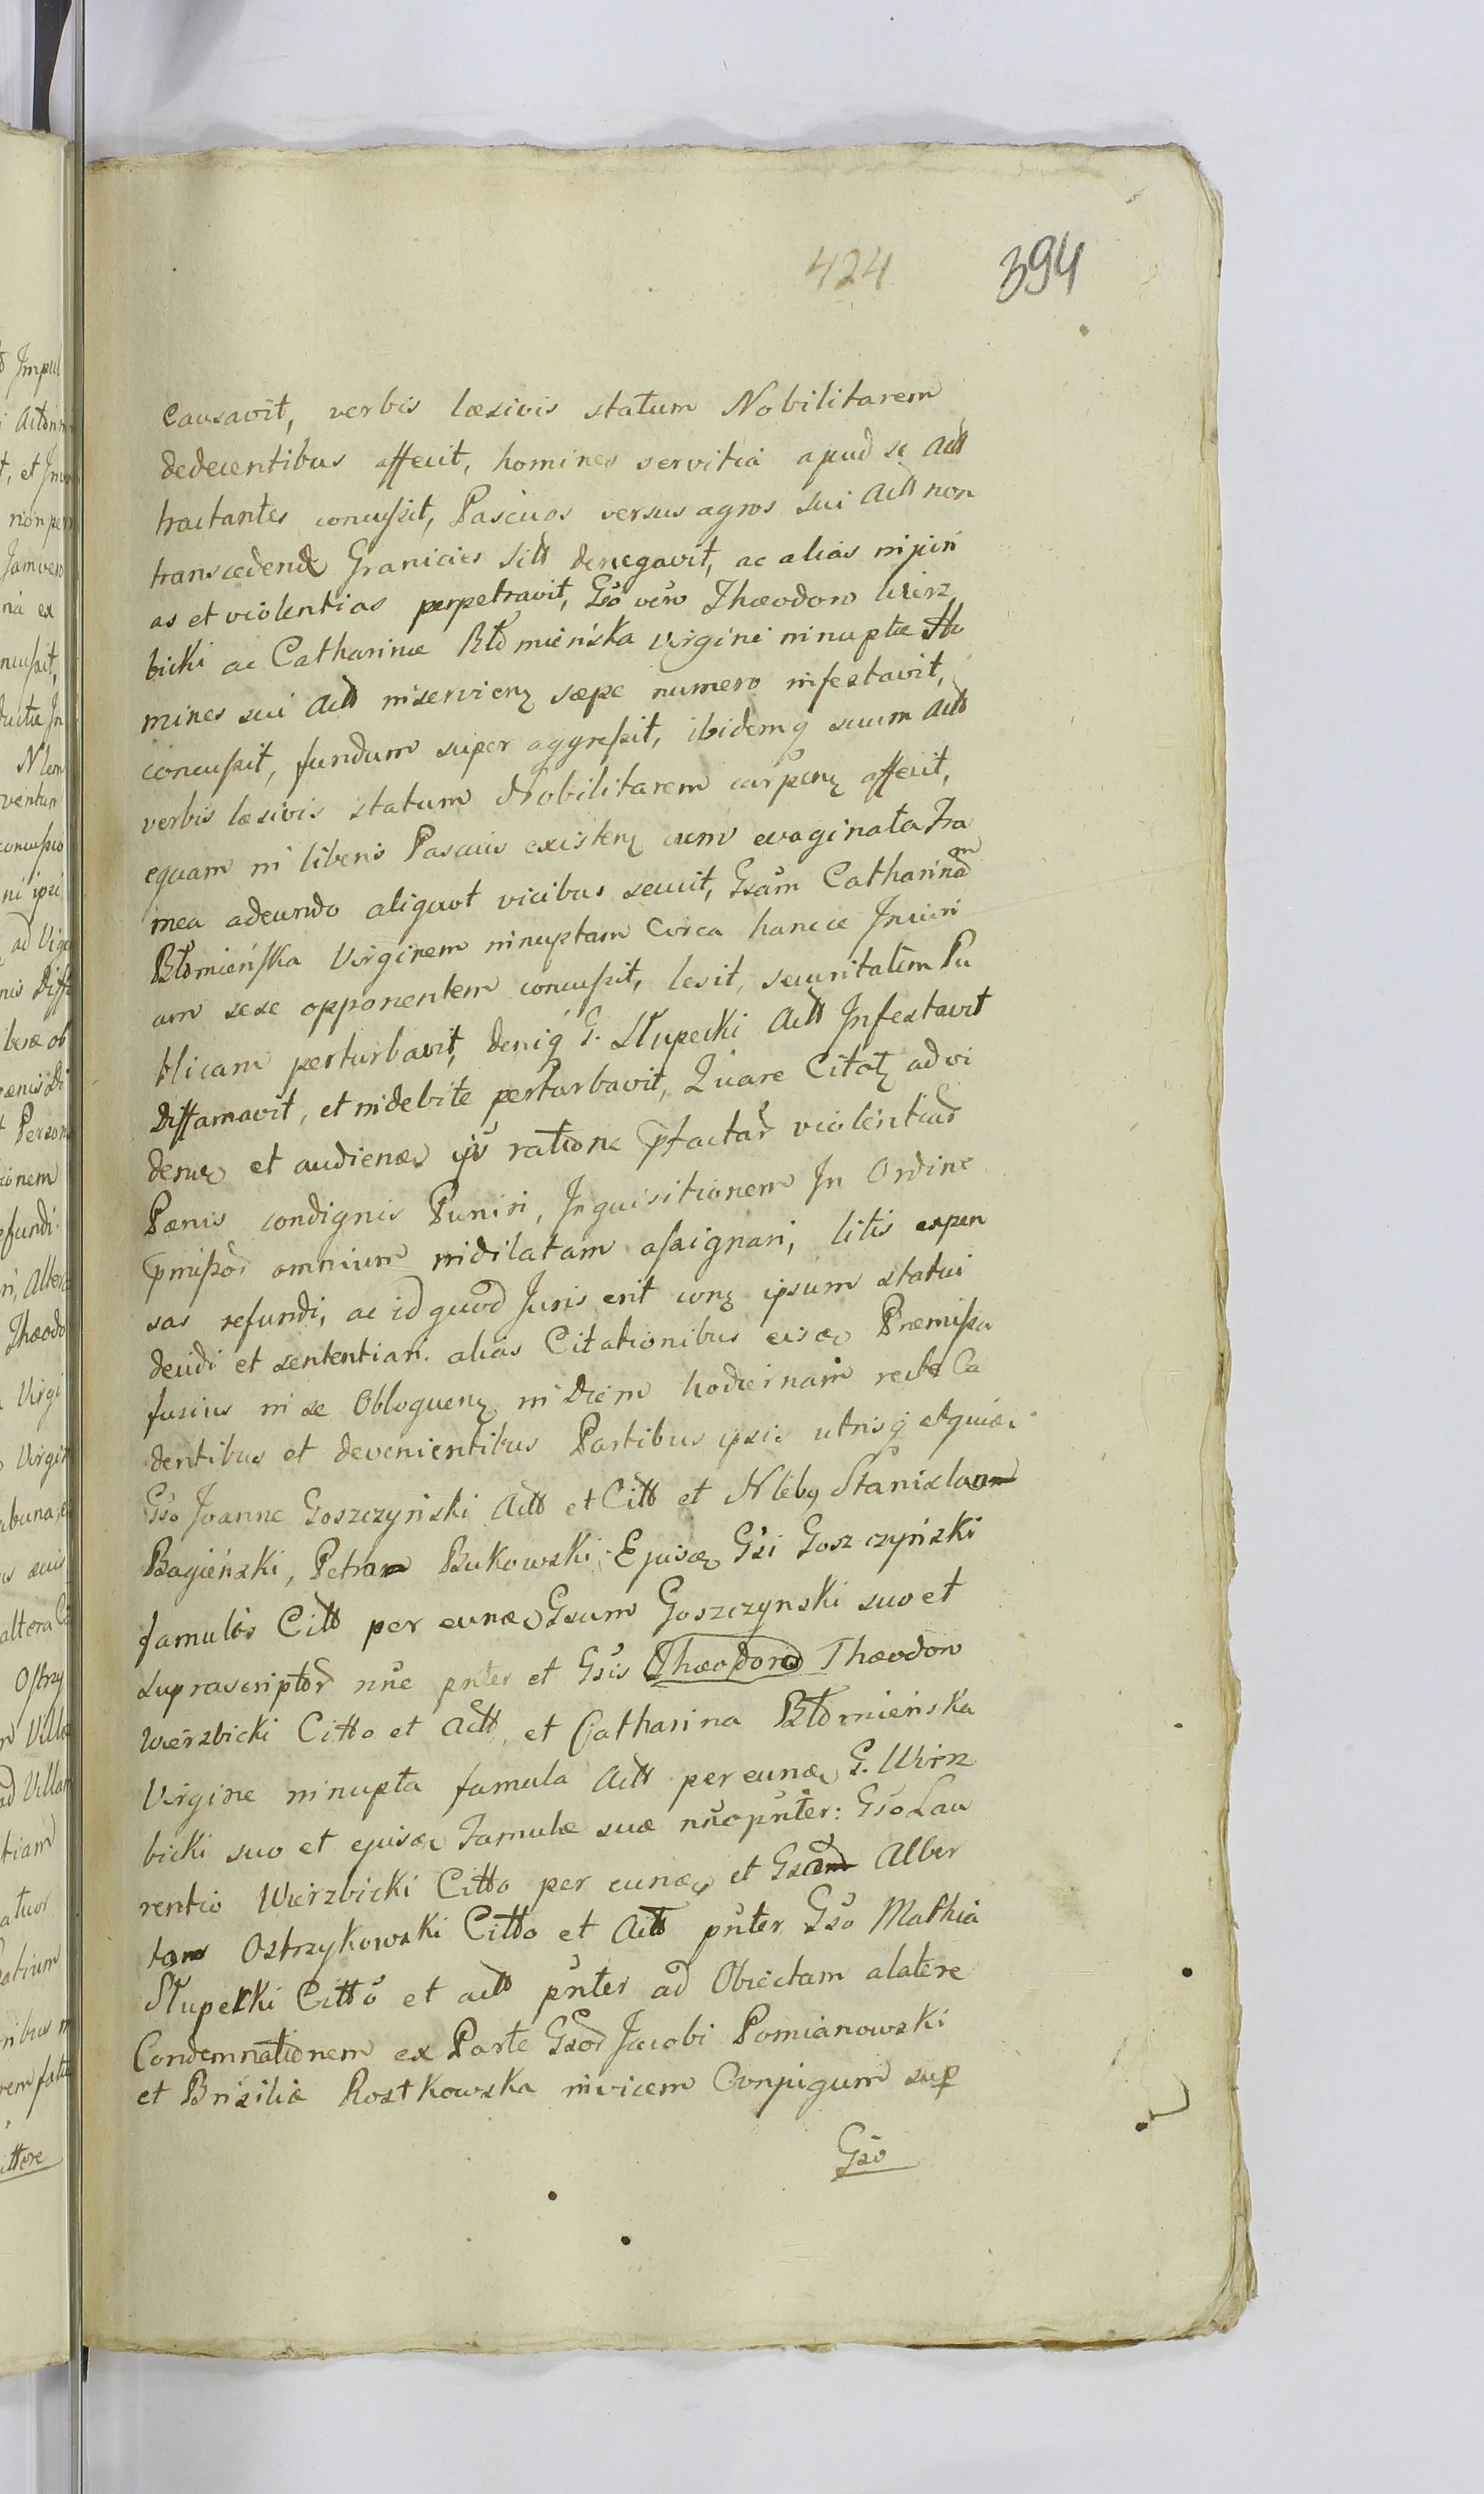 424 394
Causavit, verbis læsivis statum Nobilitarem
dedecentibus affecit, homines servitia apud se Actt
tractantes concussit, Pascuos versus agros sui Actt non
transcedend Granicies sitt denegavit, ac alias injuri
as et violentias perpetravit, Gso vero Thæodoro Wierz
bicki ac Catharinæ Błomieńska Virgini innuptæ Ho
mines sui Actt inservienq sæpe numero infestavit,
concussit, fundum super aggressit, ibidemq suum Actt
verbis læsivis statum Nobilitarem carpenq affecit,
equam in liberis Pascuis existenq cum evaginata Fra
mea adeundo aliquot vicibus secuit, Gsam Catharinam
Błomieńska Virginem innuptam Circa hancce Injuri
am sese opponentem concussit, lesit, securitatem Pu
blicam perturbavit, deniq G. Słupecki Actt Infestavit
Diffamavit, et indebite perturbavit, Quare Citatq ad vi
denq et audienq ipū ratione pfactar violentiar
Pænis condignis Puniri, Inquisitionem In Ordine
pmissor omnium indilatam assignari, litis expen
sas refundi, ac id quod Juris erit conq ipsum statui
decidi et sententiari. alias Citationibus eisq Præmissa
fusius in se Obloquenq in Diem hodiernam recte Ca
dentibus et devenientibus Partibus ipsis utrisq et quidem
Gso Joanne Goszczyński Actt et Citt et Nlebq Stanislao
Bagieński, Petro Bukowski Ejusq Gsi Goszczyński
famulis Citt per eunq Gsum Goszczynski suo et
suprascriptor nne pnter et Gsis Thæodoro Thæodoro
Wierzbicki Citto et Actt, et Catharina Błomieńska
Virgine innupta famula Actt per eunq G. Wirz
bicki suo et ejusq Famulæ suæ nneo pnter: Gso Lau
rentio Wierzbicki Citto per eunq et Gso Alber
to Ostrzykowski Citto et Actt pnter Gso Mathia
Słupecki Citto et actt pnter ad Obiectam a latere
Condemnationem ex Parte Gsor Jacobi Pomianowski
et Brisiliæ Rostkowska invicem Conjugum sup
Gso